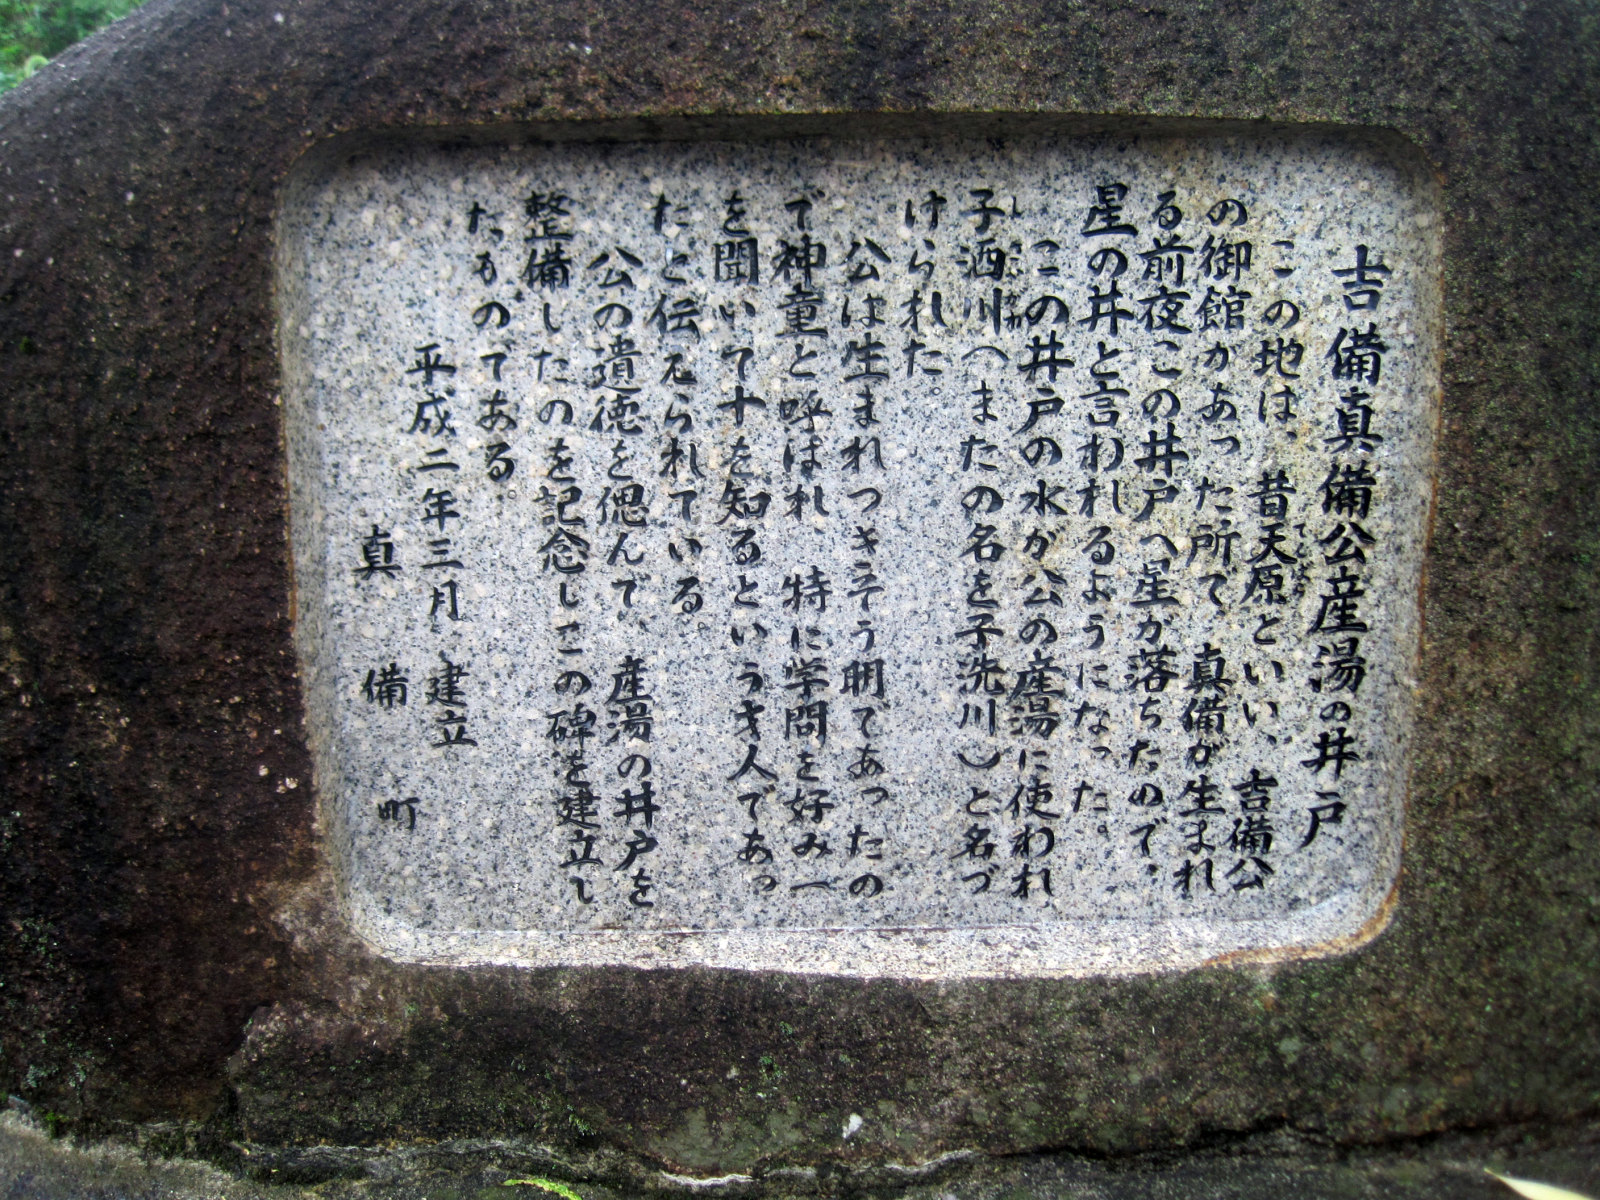 吉備真備公産湯の井戸
この地は、昔天原といい、吉備公
の御館があった所で、真備が生まれ
る前夜この井戸へ星が落ちたので、
星の井と言われるようになった。
この井戸の水が公の産湯に使われ
子洒川（またの名を子洗川）と名づ
けられた。
公は生まれつきそう明であったの
で神童と呼ばれ、特に学問を好み一
を聞いて十を知るという才人であっ
たと伝えられている。
公の遺徳を偲んで、産湯の井戸を
整備したのを記念しこの碑を建立し
たものである。
平成二年三月 建立
真備町